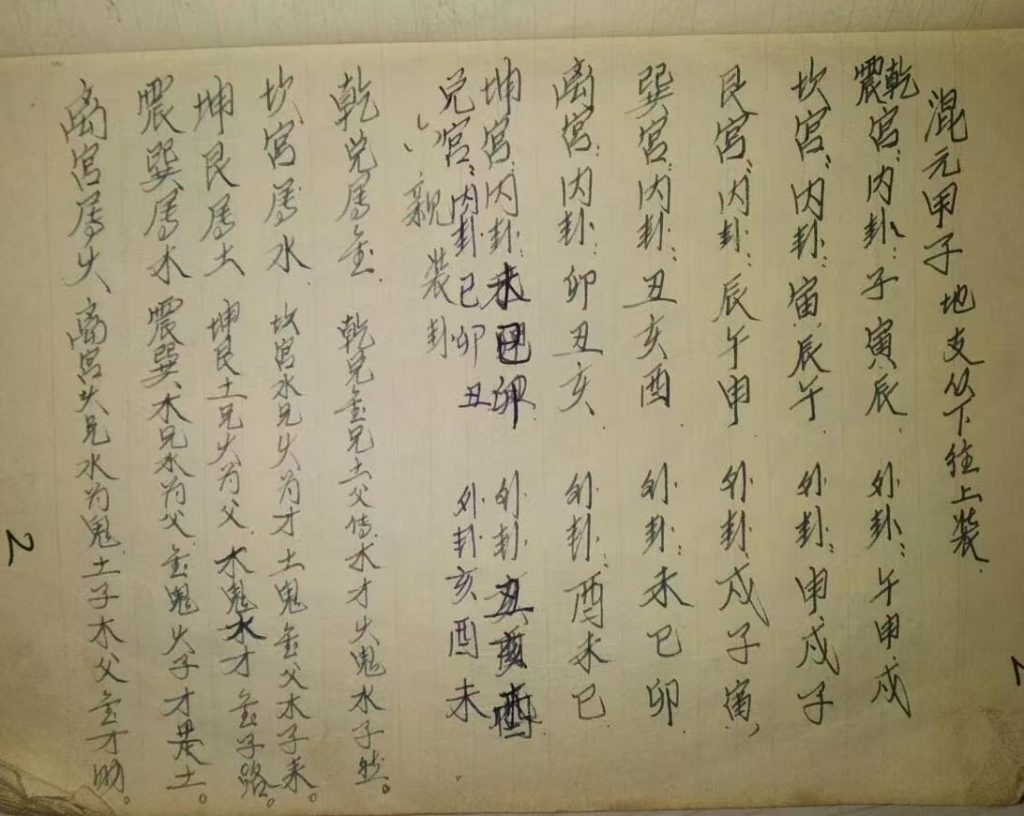 混元甲子 地支从下往上装
乾震宫:内卦:子寅辰 外卦:午申戌
坎宫:内卦:寅辰午 外卦:申戌子
艮宫:内卦:辰午申 外卦:戌子寅
巽宫:内卦:丑亥酉 外卦:未巳卯
离宫:内卦:卯丑亥 外卦:酉未巳
坤宫:内卦:未巳卯 外卦:丑亥酉
兑宫:内卦:巳卯丑 外卦:亥酉未
六亲装卦
乾兑属金 乾兑金兄土父传木才火鬼水子然。
坎宫属水 坎宫水兄火为才土鬼金父木子来。
坤艮属土 坤艮土兄火为父木鬼水才金子路。
震巽属木 震巽木兄水为父金鬼火子才是土。
离宫属火 离宫火兄水为鬼土子木父金才助。
2